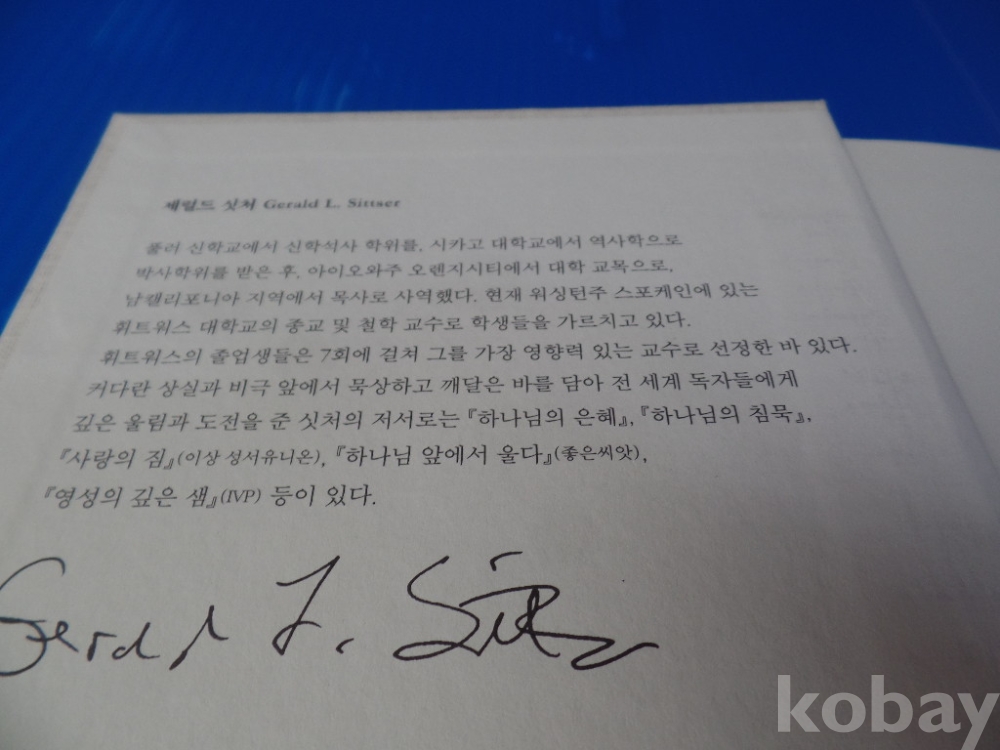 제럴드 싯처 Gerald L. Sittser
풀러 신학교에서 신학석사 학위를, 시카고 대학교에서 역사학으로
박사학위를 받은 후, 아이오와주 오렌지시티에서 대학 교목으로,
남캘리포니아 지역에서 목사로 사역했다. 현재 워싱턴주 스포케인에 있는
휘트워스 대학교의 종교 및 철학 교수로 학생들을 가르치고 있다.
휘트워스의 졸업생들은 7회에 걸쳐 그를 가장 영향력 있는 교수로 선정한 바 있다.
커다란 상실과 비극 앞에서 묵상하고 깨달은 바를 담아 전 세계 독자들에게
깊은 울림과 도전을 준 싯처의 저서로는 『하나님의 은혜』, 『하나님의 침묵』,
『사랑의 짐』(이상 성서유니온), 『하나님 앞에서 울다』(좋은씨앗),
『영성의 깊은 샘』(IVP) 등이 있다.
Gerald L. Sittser
kobay